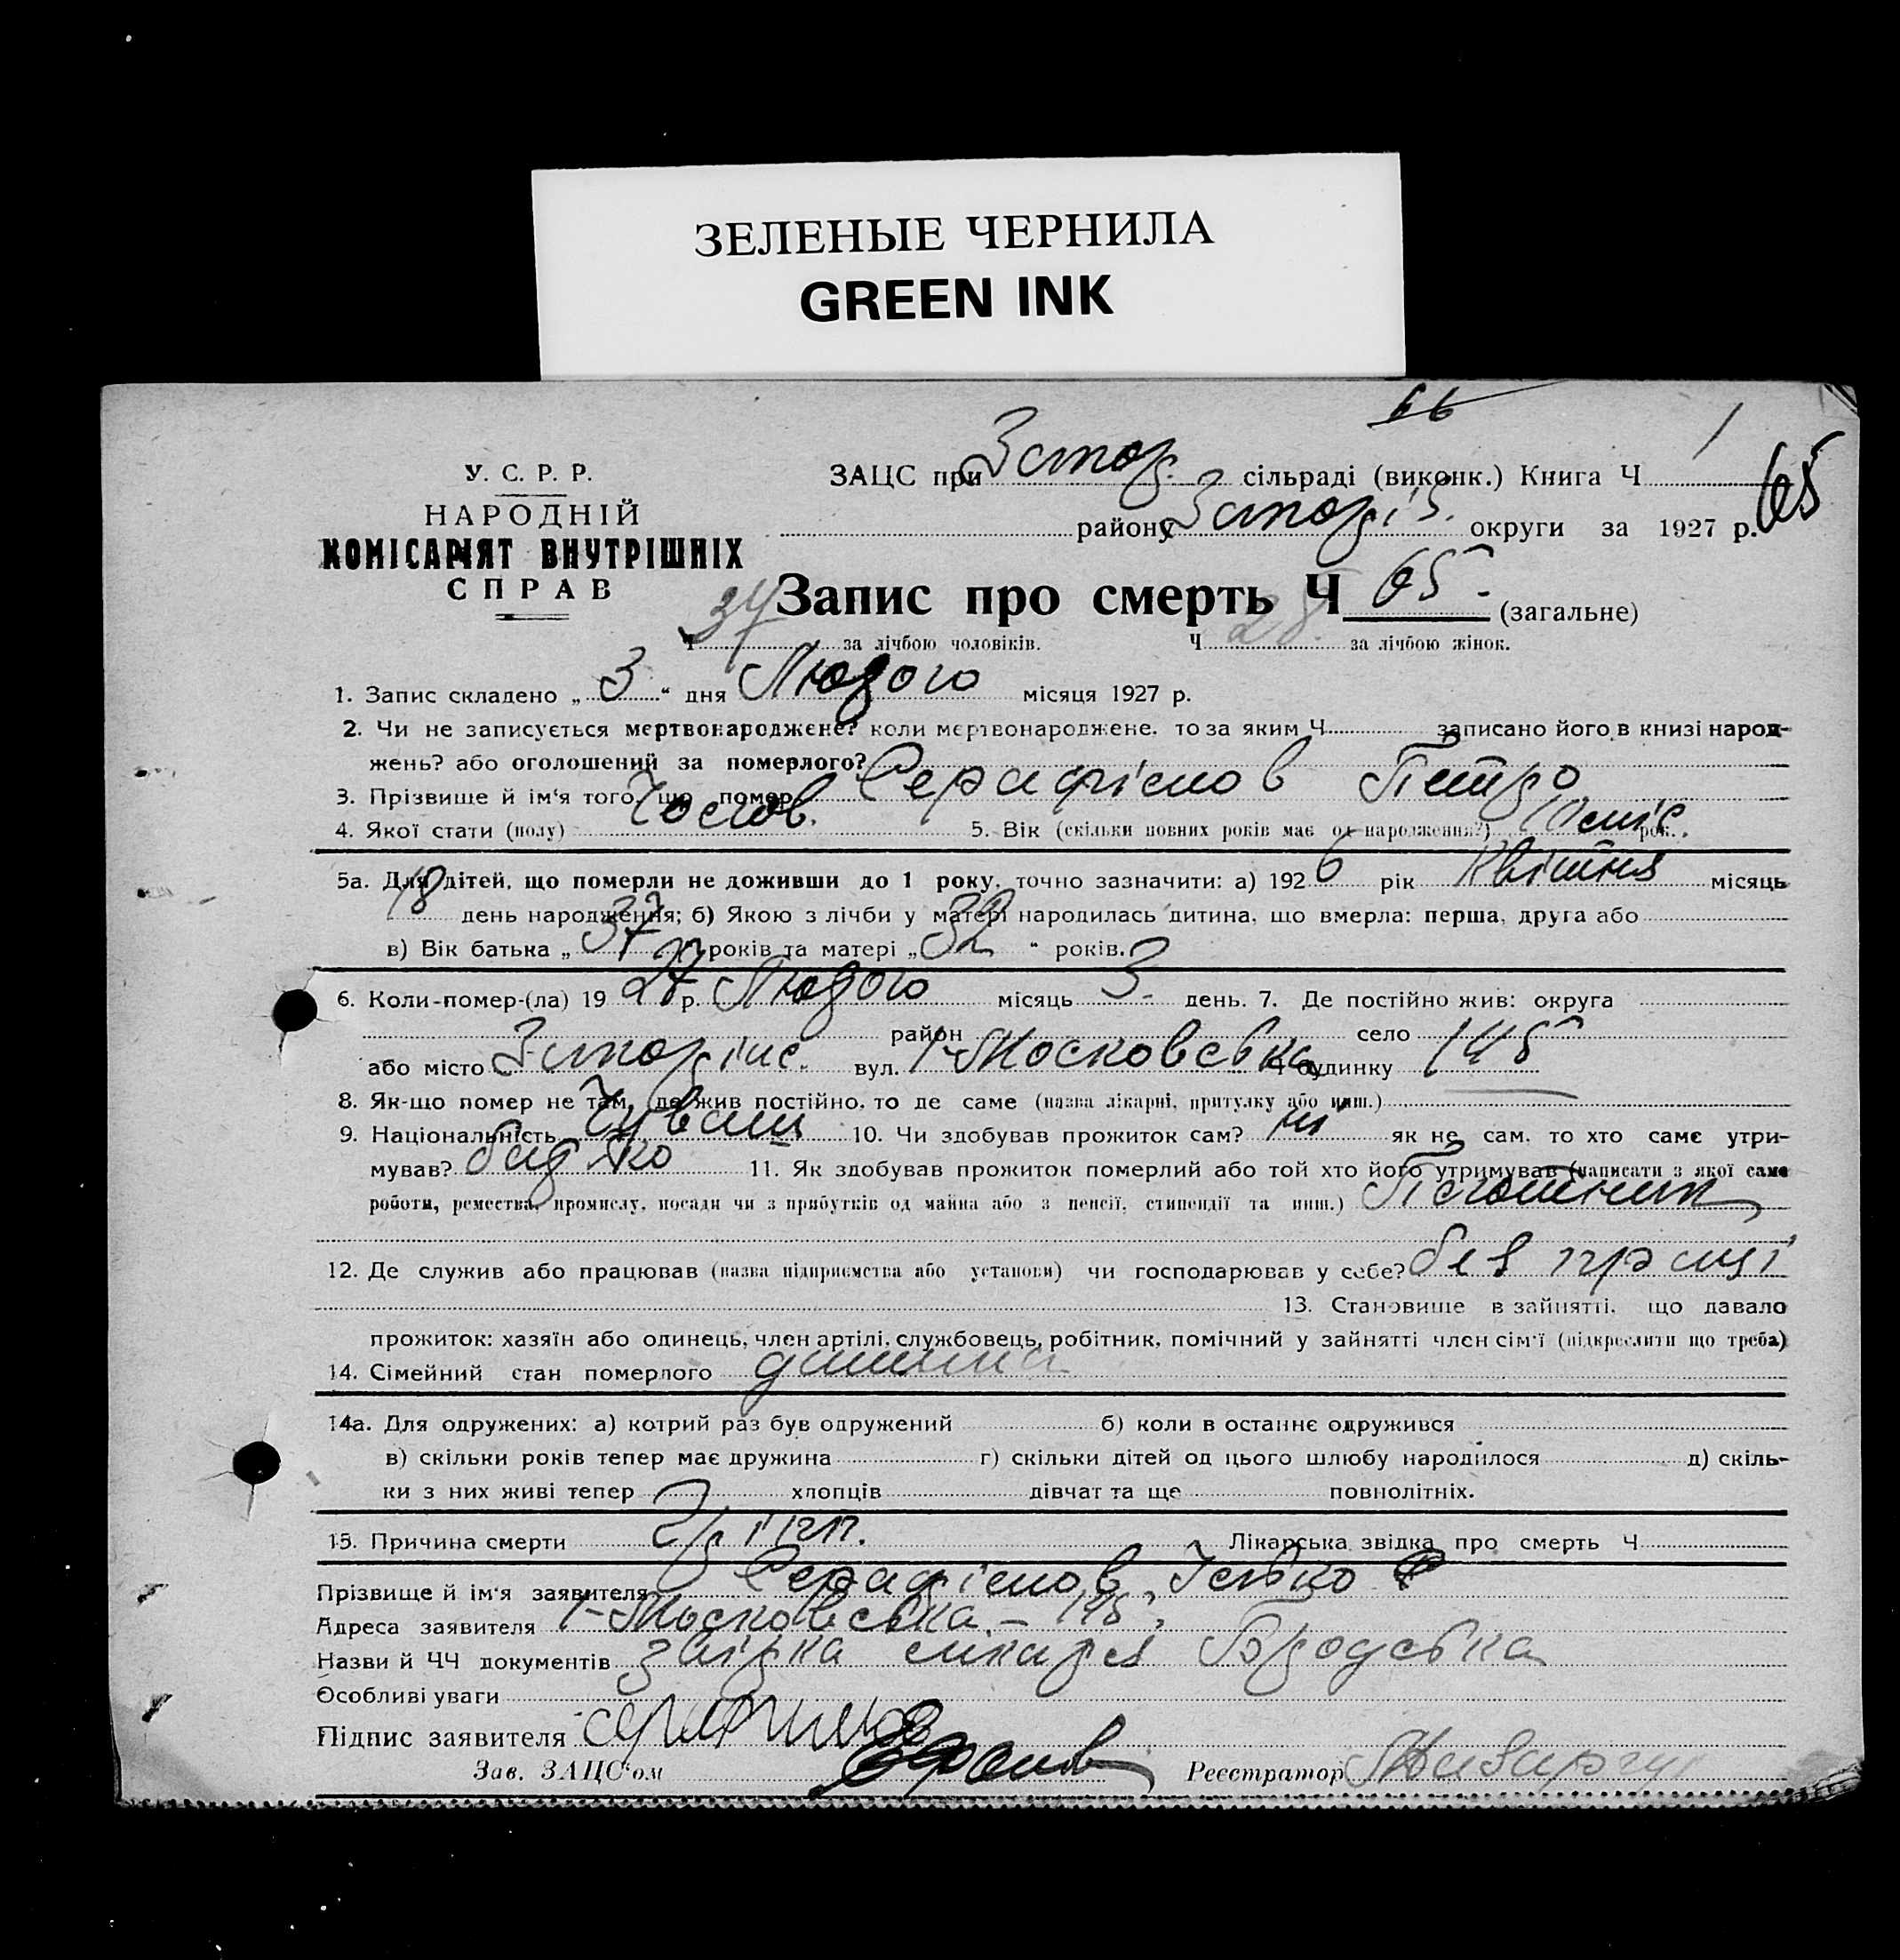 ЗЕЛЕНЫЕ ЧЕРНИЛА
GREEN INK
66
У. С. Р. Р.
НАРОДНІЙ
КОМІСАРІЯТ ВНУТРІШНІХ
СПРАВ
ЗАЦС при сільраді (виконк.) Книга Ч 1
району округи за 1927 р. 65
Запис про смерть Ч 65 (загальне)
Ч 37 за лічбою чоловіків. Ч 28 за лічбою жінок.
1. Запис складено „ 3 “ дня Лютого місяця 1927 р.
2. Чи не записується мертвонароджене? коли мертвонароджене, то за яким Ч записано його в книзі народ-
жень? або оголошений за померлого?
3. Прізвище й ім‘я того, що помер Серафімов Петро
4. Якої стати (полу) Чолов. 5. Вік (скільки повних років має од народження?) 10 міс рок.
5а. Для дітей, що померли не доживши до 1 року, точно зазначити: а) 1926 рік Квітня місяць
18 день народження; б) Якою з лічби у матері народилась дитина, що вмерла: перша, друга або
в) Вік батька „ 37 “ років та матері „ 32 “ років.
6. Коли-помер-(ла) 1927 р. Лютого місяць 3 день. 7. Де постійно жив: округа
район село
або місто вул. 1-Московська Ч будинку 145
8. Як-що помер не там, де жив постійно, то де саме (назва лікарні, притулку або инш.)
9. Національність Чуваш 10. Чи здобував прожиток сам? ні як не сам, то хто саме утри-
мував? батько 11. Як здобував прожиток померлий або той хто його утримував (написати з якої саме
роботи, ремества, промислу, посади чи з прибутків од майна або з пенсії, стипендії та инш.) Плотник
12. Де служив або працював (назва підприємства або установи) чи господарював у себе? без праці
13. Становище в зайнятті, що давало
прожиток: хазяїн або одинець, член артілі, службовець, робітник, помічний у зайнятті член сім‘ї (підкреслити що треба)
14. Сімейний стан померлого дитина
14а. Для одружених: а) котрий раз був одружений б) коли в останнє одружився
в) скільки років тепер має дружина г) скільки дітей од цього шлюбу народилося д) скіль-
ки з них живі тепер хлопців дівчат та ще повнолітніх.
15. Причина смерти Грипп. Лікарська звідка про смерть Ч
Прізвище й ім‘я заявителя Серафімов
Адреса заявителя 1-Московська - 145
Назви й ЧЧ документів звідка лікаря Бродська
Особливі уваги
Підпис заявителя
Зав. ЗАЦС‘ом
Реєстратор